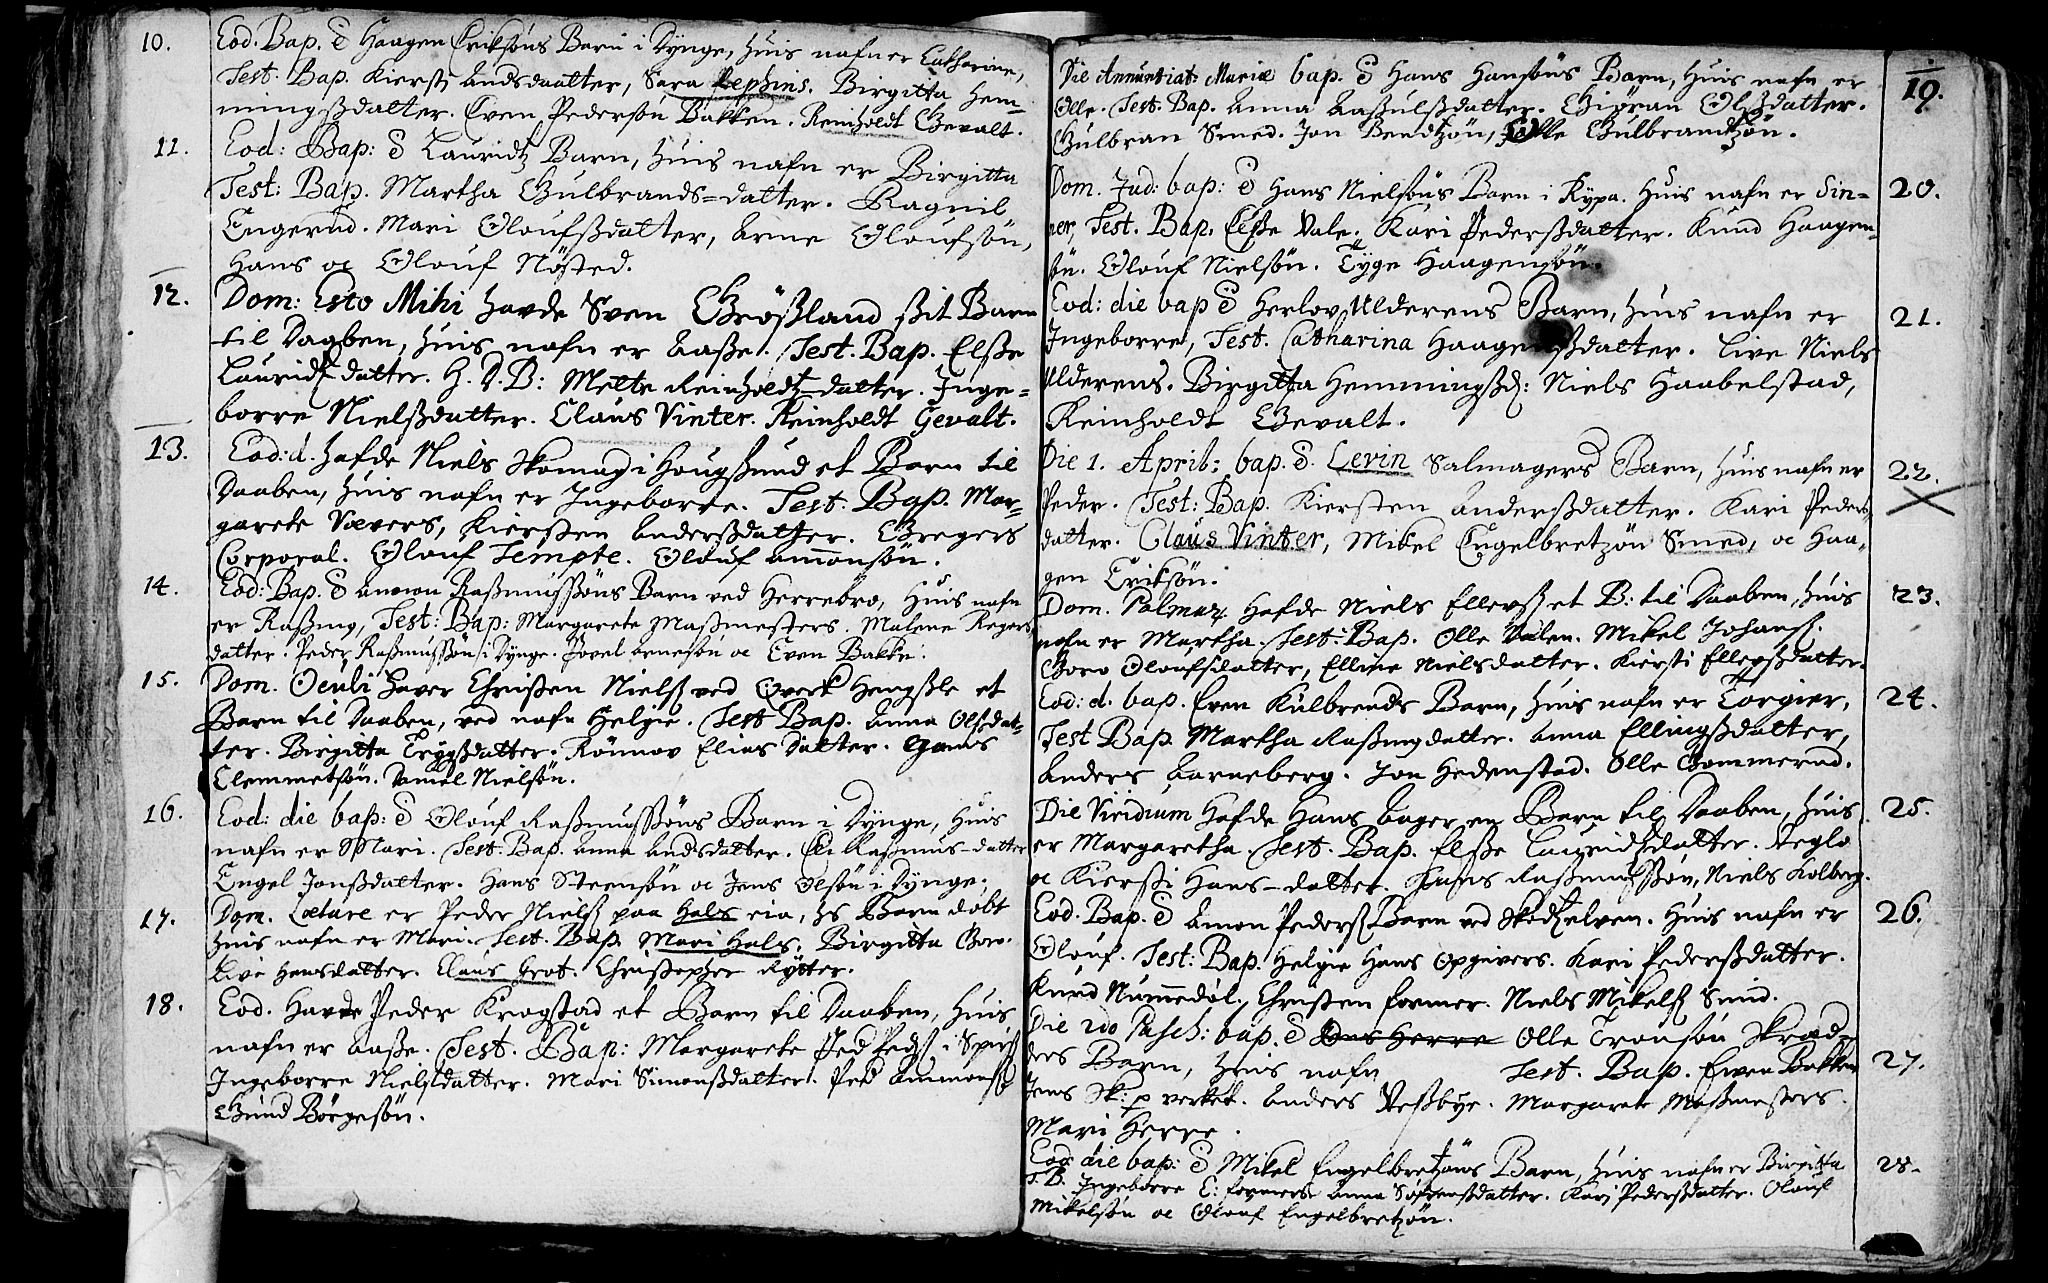 10. Eod. Bap. e Haagen Eriksöns Barn i Dynge, huis nafn er Catharine,
Test. Bap. Kiersti Andsdaatter, Sara Zephins. Birgitta Hem-
mingsdatter. Even Pedersön Bakken. Reinholdt Gevalt.
11. Eod: Bap: e Lauridtz Barn, huis nafn er Birgitta
Test: Bap. Martha Gulbrands=datter. Ragnil
Engerud. Mari Oloufsdatter, Arne Oloufsön,
Hans oc Olouf Nösted.
12. Dom: Esto Mihi havde Sven Gröszland sit Barn
til Daaben, huis nafn er Aasze. Test. Bap. Elsze
Lauridtz datter. H. D. B: Mette Reinholdtz-datter. Inge=
borre Nielszdatter. Claus Vinter. Reinholdt Gevalt.
13. Eod: d. hafde Niels Skomag: i Hougsund et Barn til
Daaben, huis nafn er Ingeborre. Test: Bap. Mar=
garete Vævers, Kiersten Anderszdatter. Gregers
Corporal. Olouf Tempte. Olouf Amonsön.
14. Eod: Bap. e Amon Raszmuszöns Barn ved Herrebro, Huis nafn
er Raszmg, Test: Bap: Margarete Maszmesters. Malene Regers
datter. Peder Raszmuszön i Dynge. Povel Arnesön oc Even Bakke.
15. Dom. Oculi haver Christen Nielsz ved Overk Hengszle et
Barn til Daaben, ved nafn Helgie. Test Bap. Anna Olszdat-
ter. Birgitta Trygszdatter. Rönnov Elias datter. Hans
Clemmetsön. Daniel Nielsön.
16. Eod: die bap: e Olouf Raszmuszöns Barn i Dynge, Huis
nafn er Mari. Test. Bap. Anna Andsdatter. Eli Raszmus-datter
Engel Jonszdatter. Hans Steensön oc Jens Olsön i Dynge.
17. Dom. Lætare er Peder Nielsz paa Hals eia, hs Barn döbt
huis nafn er Mari. Test. Bap. Mari Hals. Birgitta Boro.
Live Hansdatter. Claus Grot. Christopher Rytter.
18. Eod. Havde Peder Krogstad et Barn til Daaben, Huis
nafn er Aasze. Test. Bap: Margarete Ped Pedsz i
Ingeborre Nielszdatter. Mari Simonszdatter. Ped Ammonsz
Gund Börgesön.
Die Annuntiat: Mariæ bap. e Hans Hansöns Barn, Huis nafn er 19.
Olle. Test. Bap. Anna Aaszulszdatter. Giöran Olszdatter.
Gulbran Smed. Jon Bendtzön, Olle Gulbrandtzön.
Dom. Jud: bap: e Hans Nielsöns Barn i Rypa. Huis nafn er Sin= 20.
ner, Test. Bap. Elsze Vale. Kari Pederszdatter. Knud Haagen=
sön. Olouf Nielsön. Tyge Haagensön.
Eod: die bap e Herlov Ulderens Barn, huis nafn er 21.
Ingeborre, Test. Catharina Haagenszdatter. Live Niels
Ulderens. Birgitta Hemmingszd: Niels Haabelstad,
Reinholdt Gevalt.
Die 1. April: bap. e. Levin Salmagers Barn, huis nafn er 22.
Peder. Test: Bap. Kiersten Anderszdatter. Kari Peders
datter. Claus Vinter, Mikel Engelbretzön Smed, oc Haa=
gen Eriksön.
Dom. Palmar. Hafde Niels Ellevsz et B: til Daaben, Huis 23.
nafn er Martha. Test: Bap. Olle Dalen. Mikel Johansz.
Goro Oloufsdatter, Elline Nielsdatter. Kiersti Ellevszdatter.
Eod: d. bap. Even Kulbrends Barn, huis nafn er Torgier, 24.
Test Bap. Martha Raszmgdatter. Anna Ellingszdatter,
Anders Barneberg. Jon Hedenstad. Olle Gommerud.
Die Viridium Hafde Hans Bager en Barn til Daaben, Huis 25.
er Margaretha. Test. Bap. Elsze Lauridtzdatter. Aeglo
oc Kiersti Hans-datter. Hans Raszmuszön, Niels Kolberg.
Eod. Bap. e Amon Pedersz Barn ved Skodtzelven. Huis nafn er 26.
Olouf. Test: Bap. Helgie Hans Opgivers. Kari Pederszdatter.
Knud Nummedöl. Christen Former. Niels Mikelsz Smid.
Die 2do Pasch: bap. e Herre Olle Tronsön Skræd=
ders Barn, huis nafn Test. Bap. Even Bakken 27.
Jens Sk: p verket. Anders Vesbye. Margarete Maszmesters.
Mari Herre.
Eod: die bap: e Mikel Engelbretzöns Barn, huis nafn er Birgitta 28.
T. B. Ingeborre C: Formers Anna Söfrenszdatter. Kari Pederszdatter. Olouf
Mikelsön oc Olouf Engelbretzön.